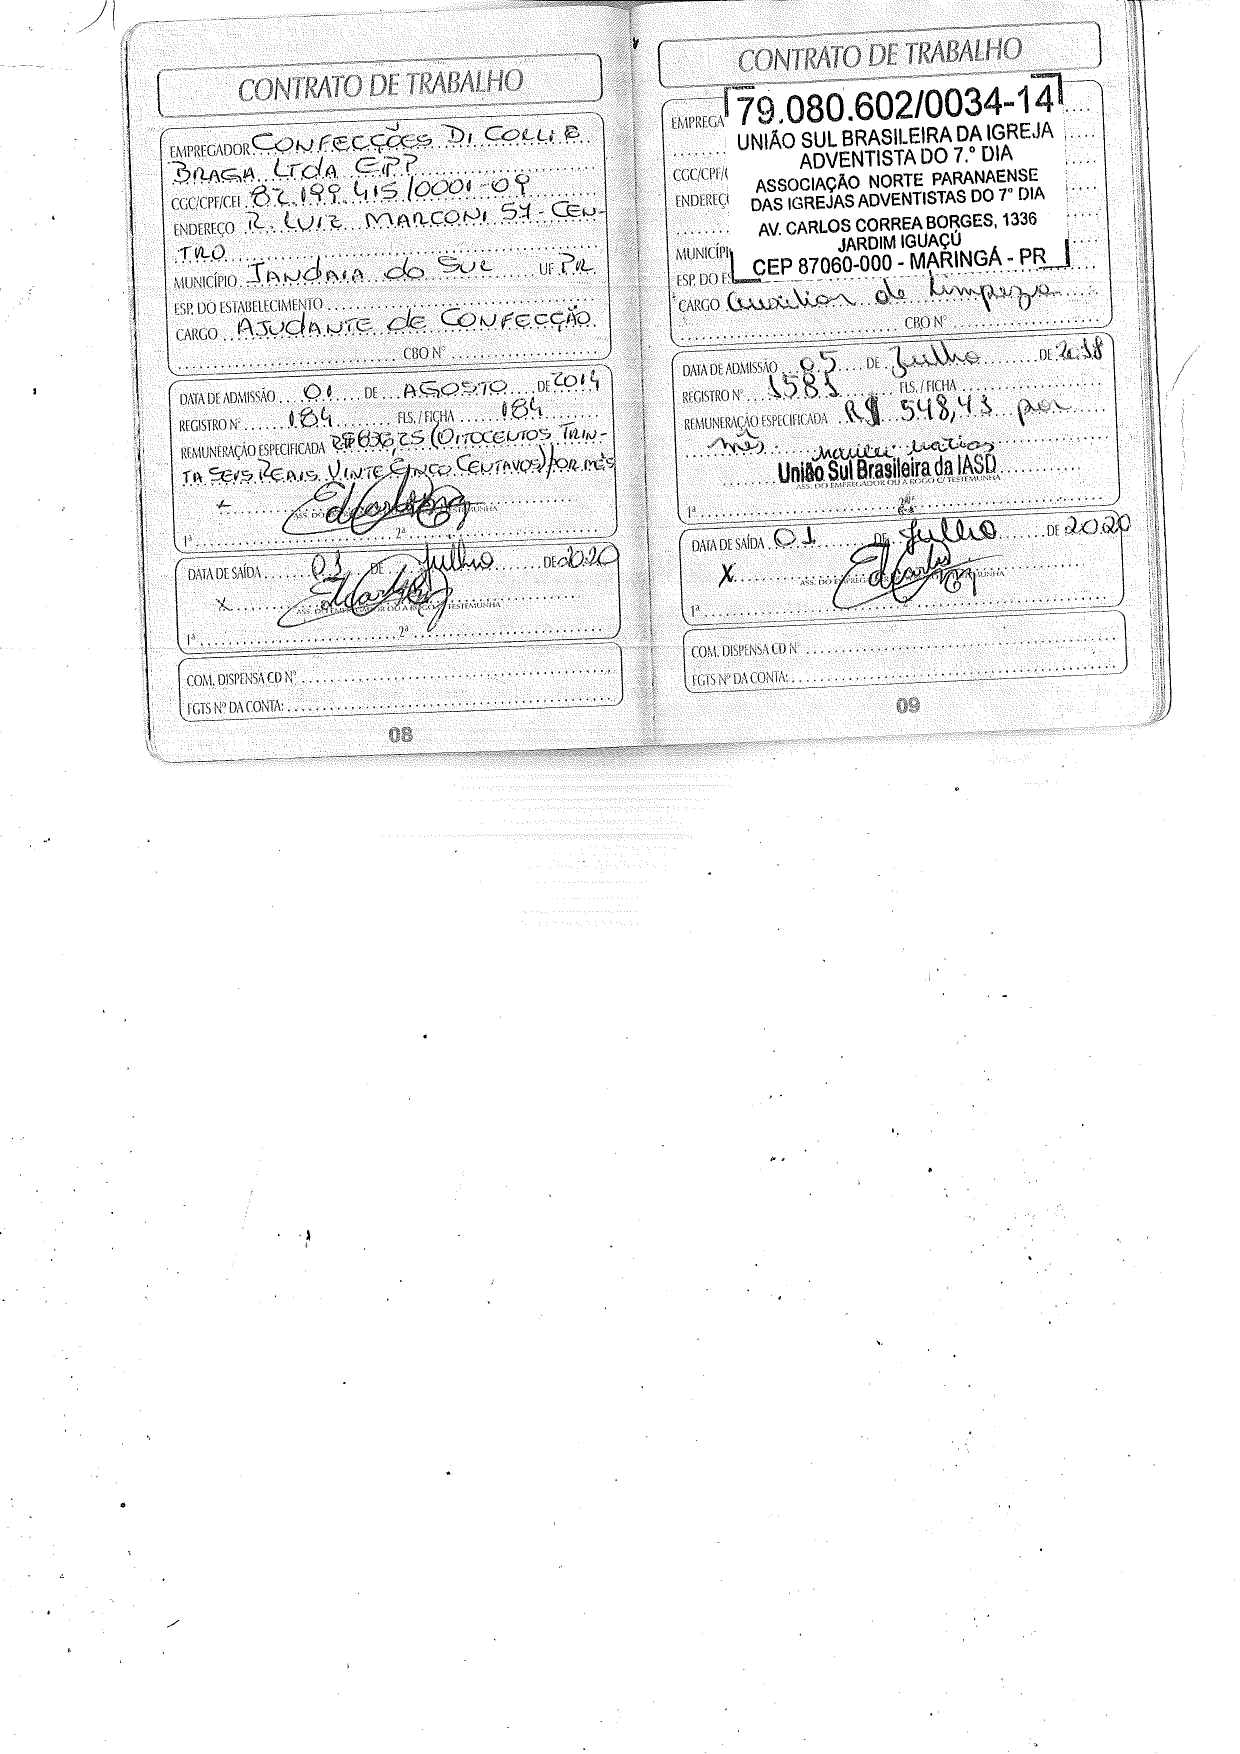 CONTRATO DE TRABALHO
EMPREGADOR CONFECÇÕES DI COLLI E
BRAGA LTDA EPP
CGC/CPF/CEI 82.199.415/0001-09
ENDEREÇO R. LUIZ MARCONI 54-CEN-
TRO
MUNICÍPIO JANDAIA do SUL UF PR
ESP. DO ESTABELECIMENTO
CARGO AJUDANTE de CONFECÇÃO
CBO Nº
DATA DE ADMISSÃO 01 DE AGOSTO DE 2014
REGISTRO Nº 184 FLS. / FICHA 184
REMUNERAÇÃO ESPECIFICADA R$ 836,25 (OITOCENTOS TRIN-
TA SEIS REAIS VINTE CINCO CENTAVOS) POR MÊS
1ª 2ª
DATA DE SAÍDA 01 DE Julho DE 2020
X
ASS. DO EMPREGADOR OU A ROGO C/ TESTEMUNHA
1ª 2ª
COM. DISPENSA CD Nº
FGTS Nº DA CONTA:
08
CONTRATO DE TRABALHO
EMPREGA
79.080.602/0034-14
UNIÃO SUL BRASILEIRA DA IGREJA
ADVENTISTA DO 7.º DIA
CGC/CPF/
ASSOCIAÇÃO NORTE PARANAENSE
ENDEREÇ
DAS IGREJAS ADVENTISTAS DO 7º DIA
AV. CARLOS CORREA BORGES, 1336
JARDIM IGUAÇÚ
MUNICÍPI
CEP 87060-000 - MARINGÁ - PR
ESP. DO E
CARGO Auxiliar de Limpeza
CBO Nº
DATA DE ADMISSÃO 05 DE Julho DE 2018
REGISTRO Nº 1581 FLS. / FICHA
REMUNERAÇÃO ESPECIFICADA R$ 548,43 por
mês
União Sul Brasileira da IASD
ASS. DO EMPREGADOR OU A ROGO C/ TESTEMUNHA
1ª 2ª
DATA DE SAÍDA 01 DE Julho DE 2020
X
1ª
COM. DISPENSA CD Nº
FGTS Nº DA CONTA:
09